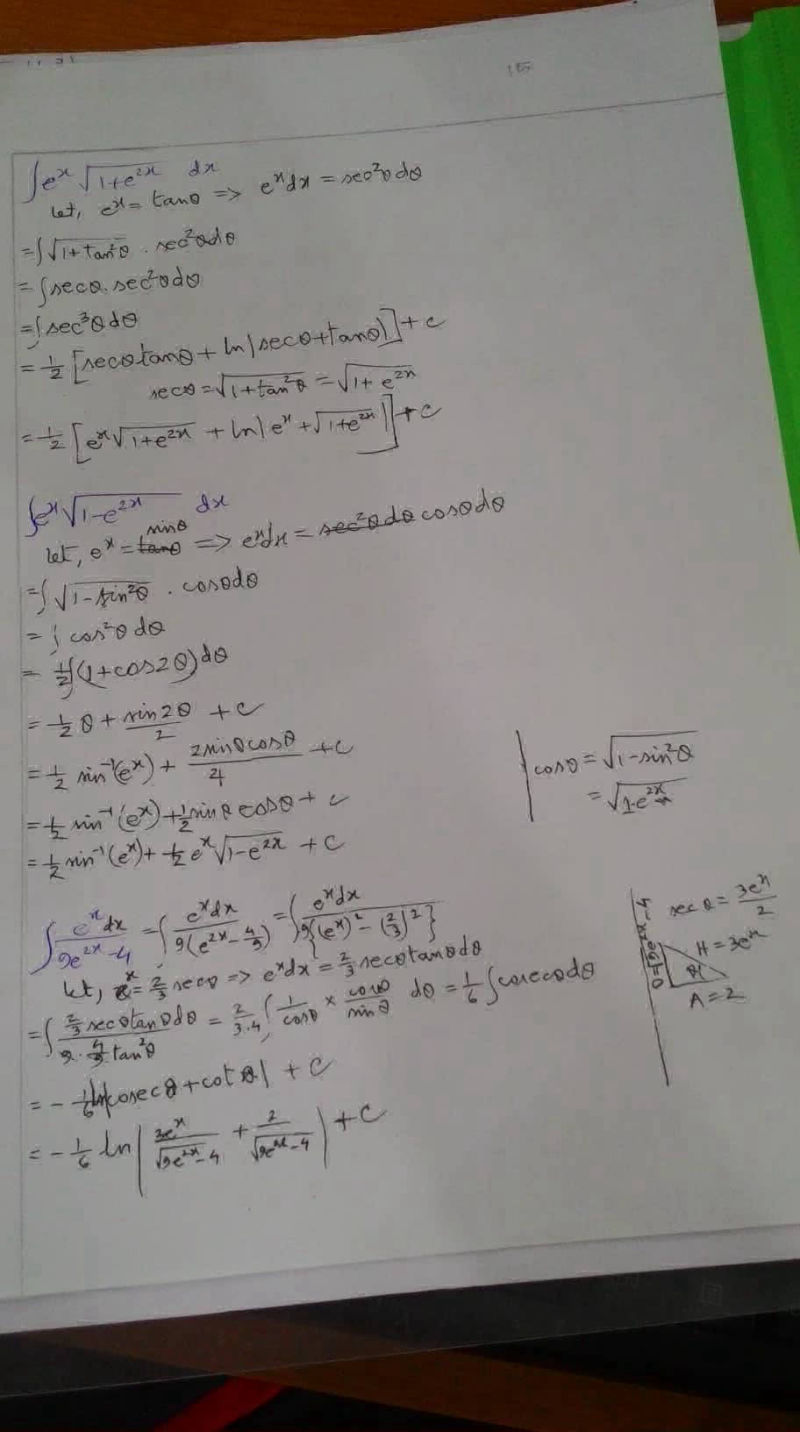 ∫eˣ √(1+e²ˣ) dx
let, eˣ = tanθ => eˣdx = sec²θdθ
=∫√(1+tan²θ) . sec²θdθ
= ∫secθ.sec²θdθ
=∫sec³θdθ
= 1/2 [secθtanθ + ln|secθ+tanθ|]+c
secθ=√(1+tan²θ) = √(1+e²ˣ)
= 1/2 [eˣ√(1+e²ˣ) + ln|eˣ+√(1+e²ˣ)|]+c
∫eˣ√(1-e²ˣ) dx
let, eˣ = sinθ => eˣdx = cosθdθ
=∫√(1-sin²θ) . cosθdθ
= ∫cos²θdθ
= 1/2∫(1+cos2θ)dθ
= 1/2 θ + sin2θ/2 +c
= 1/2 sin⁻¹(eˣ) + 2sinθcosθ/4 +c
cosθ = √(1-sin²θ)
= √(1-e²ˣ)
= 1/2 sin⁻¹(eˣ)+1/2 sinθ cosθ + c
= 1/2 sin⁻¹(eˣ)+ 1/2 eˣ√(1-e²ˣ) +c
∫eˣdx/(9e²ˣ-4) =∫eˣdx/9(e²ˣ-4/9) =∫eˣdx/9{(eˣ)²-(2/3)²}
let, eˣ = 2/3 secθ => eˣdx = 2/3 secθtanθdθ
=∫(2/3 secθtanθdθ)/(9.4/9 tan²θ) = 2/3.4 ∫1/cosθ × cosθ/sinθ dθ = 1/6 ∫cosecθdθ
= -1/6 ln|cosecθ+cotθ| + c
= -1/6 ln|3eˣ/√(9e²ˣ-4) + 2/√(9e²ˣ-4)|+c
secθ = 3eˣ/2
H=3eˣ
θ
A=2